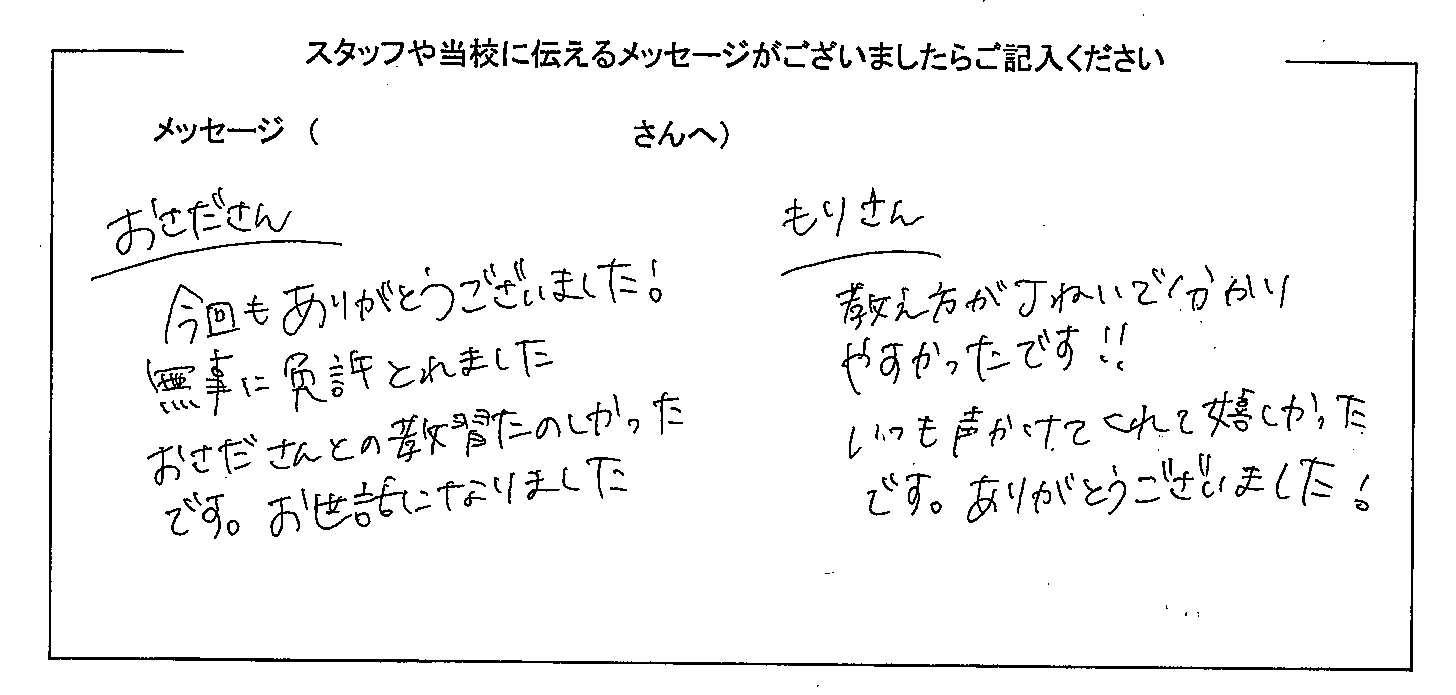 スタッフや当校に伝えるメッセージがございましたらご記入ください
メッセージ（　　　　　　　　　　さんへ）
おさださん
今回もありがとうございました！
無事に免許とれました
おさださんとの教習たのしかった
です。お世話になりました
もりさん
教え方が丁ねいで分かり
やすかったです!!
いつも声かけてくれて嬉しかった
です。ありがとうございました！